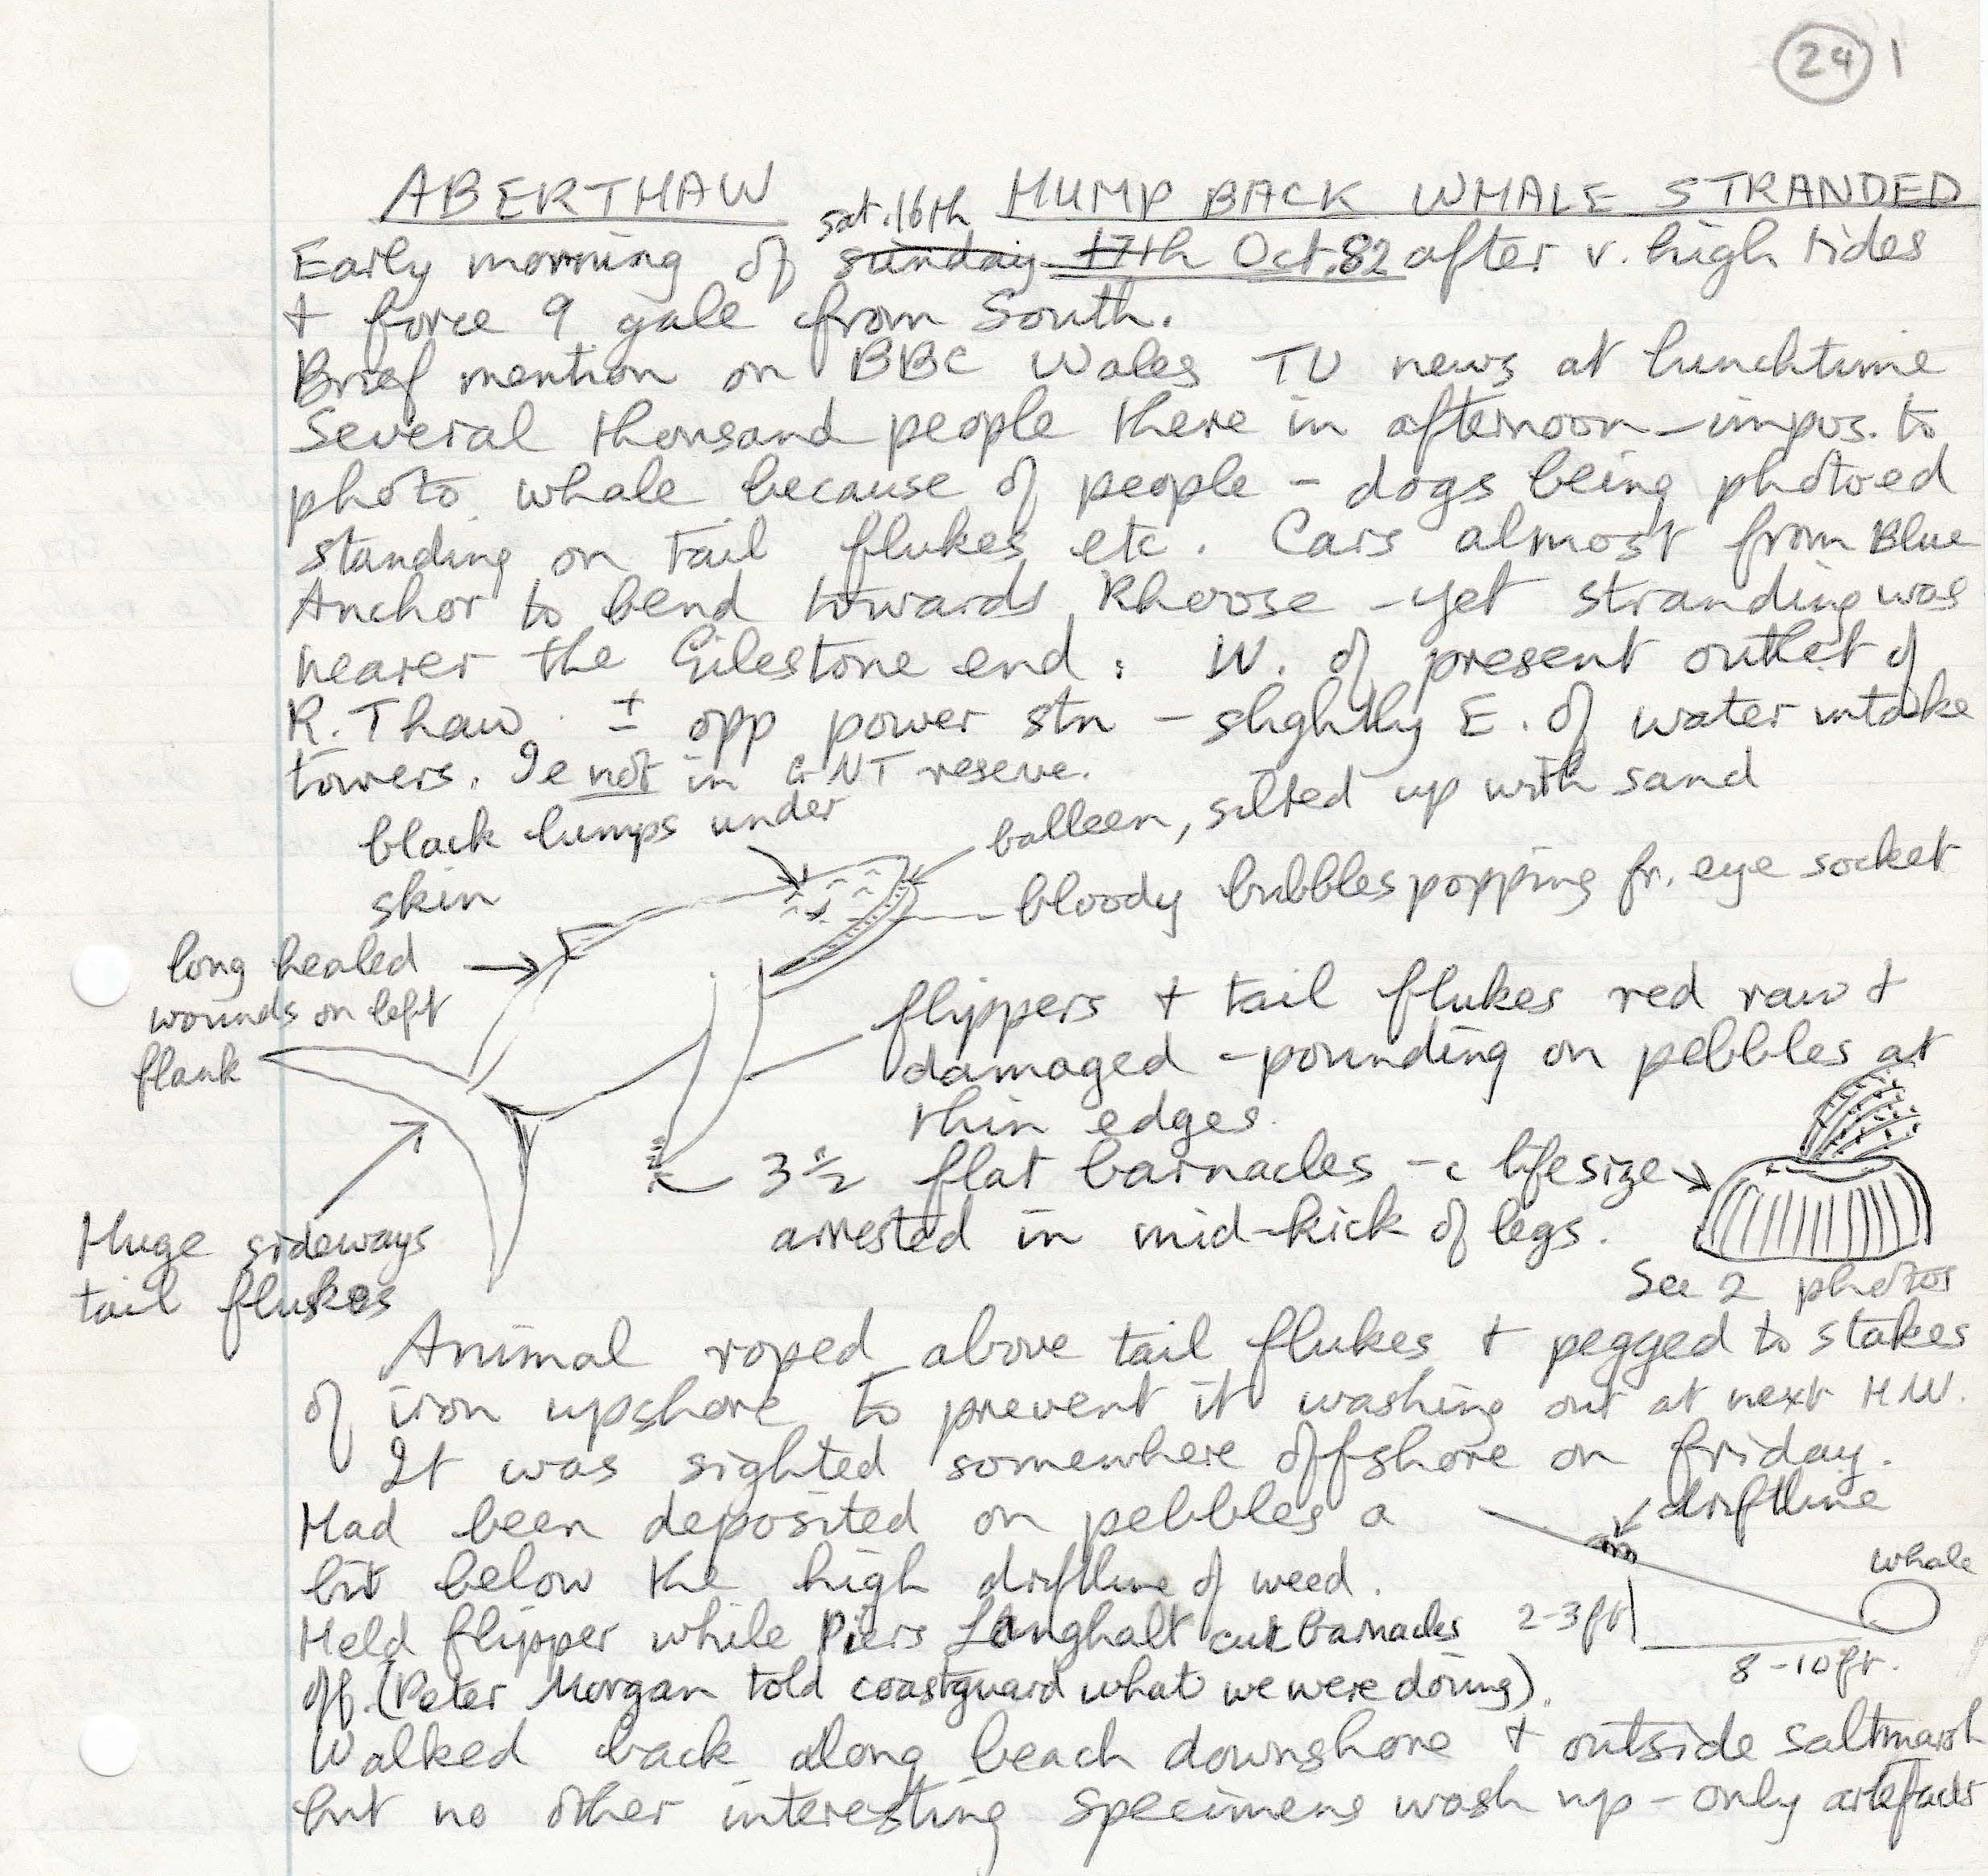 24 1
ABERTHAW HUMP BACK WHALE STRANDED
sat. 16th
Early morning of sunday 17th Oct. 82 after v. high tides
+ force 9 gale from South.
Brief mention on BBC Wales TV news at lunchtime
Several thousand people there in afternoon - impos. to
photo whale because of people - dogs being photoed
standing on tail flukes etc. Cars almost from Blue
Anchor to bend towards Rhoose - yet stranding was
nearer the Gilestone end: W. of present outlet of
R. Thaw. ± opp power stn - slightly E. of water intake
towers. Ie not in GNT reserve.
black lumps under
skin
balleen, silted up with sand
bloody bubbles popping fr. eye socket
long healed
wounds on left
flank
flippers + tail flukes red raw +
damaged - pounding on pebbles at
thin edges.
3 1/2 flat barnacles - c lifesize
arrested in mid-kick of legs.
See 2 photos
Huge sideways
tail flukes
Animal roped above tail flukes + pegged to stakes
of iron upshore to prevent it washing out at next H.W.
It was sighted somewhere offshore on friday.
Had been deposited on pebbles a
bit below the high driftline of weed.
driftline
whale
2-3ft
8-10ft.
Held flipper while Piers Langhalt cut barnacles
off. (Peter Morgan told coastguard what we were doing).
Walked back along beach downshore + outside saltmarsh
but no other interesting specimens wash up - only artefacts